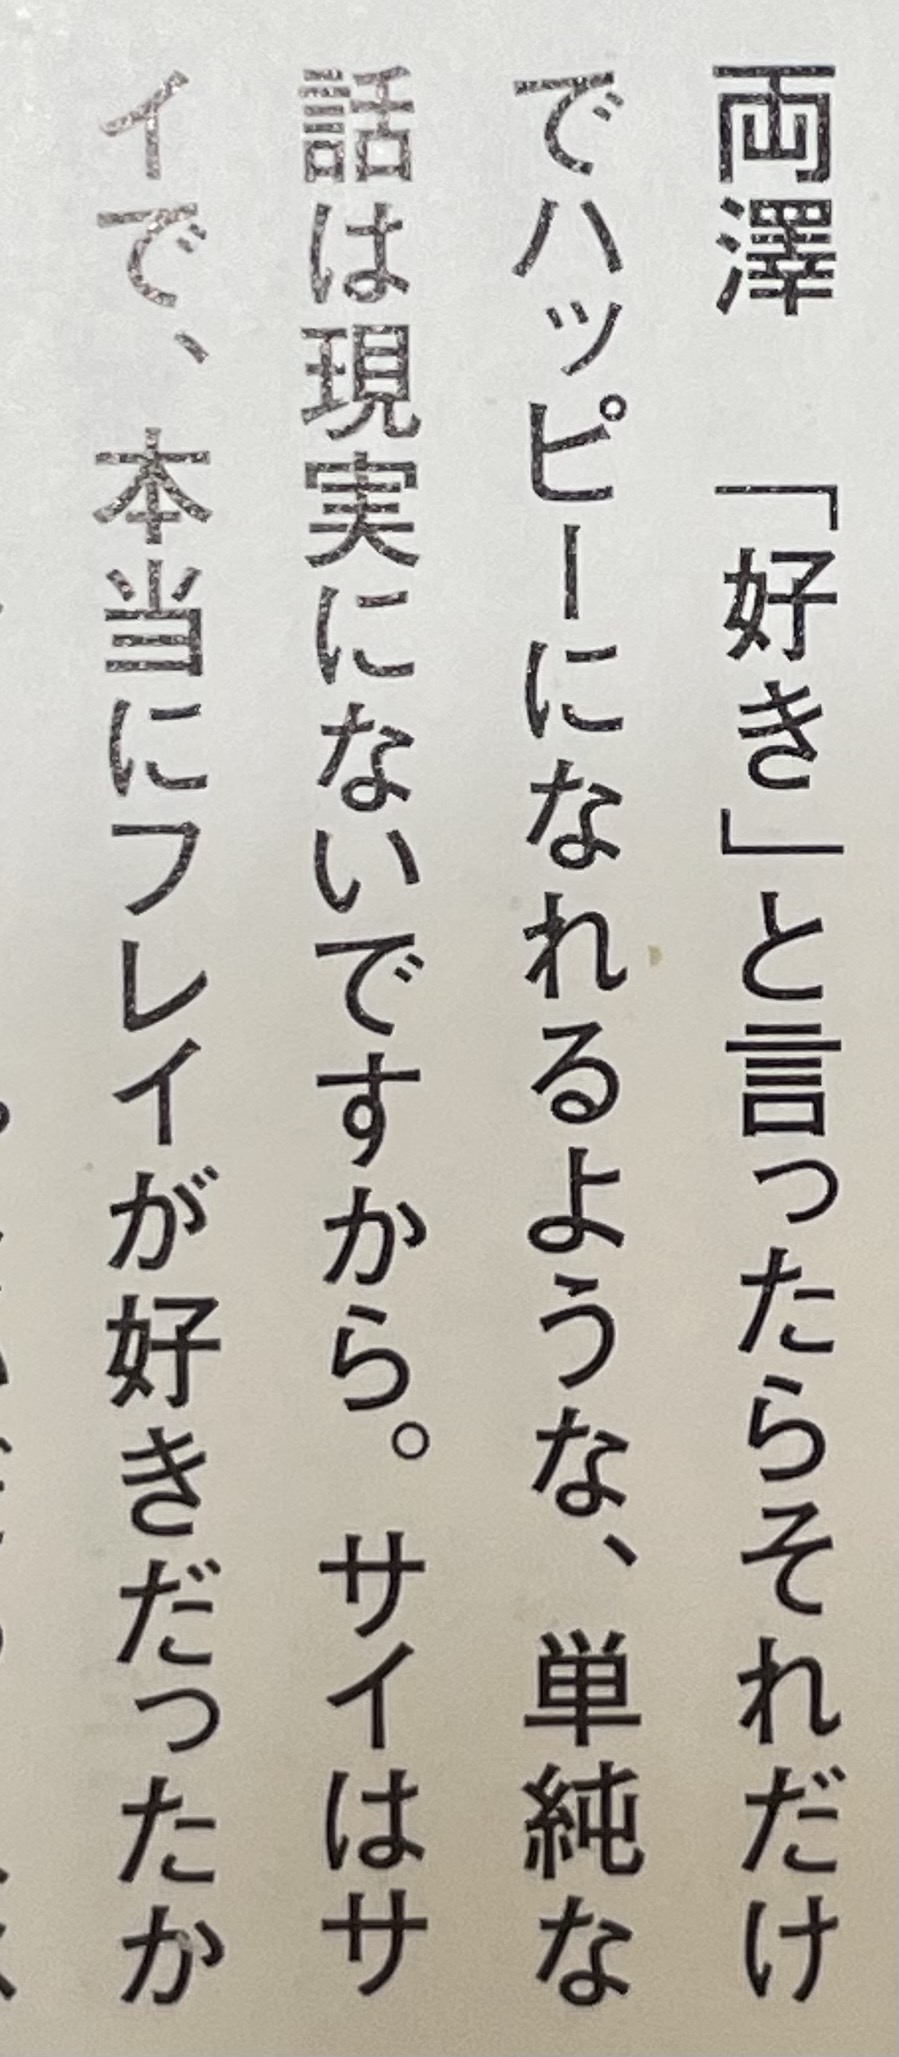 両澤　「好き」と言ったらそれだけ
でハッピーになれるような、単純な
話は現実にないですから。サイはサ
イで、本当にフレイが好きだったか